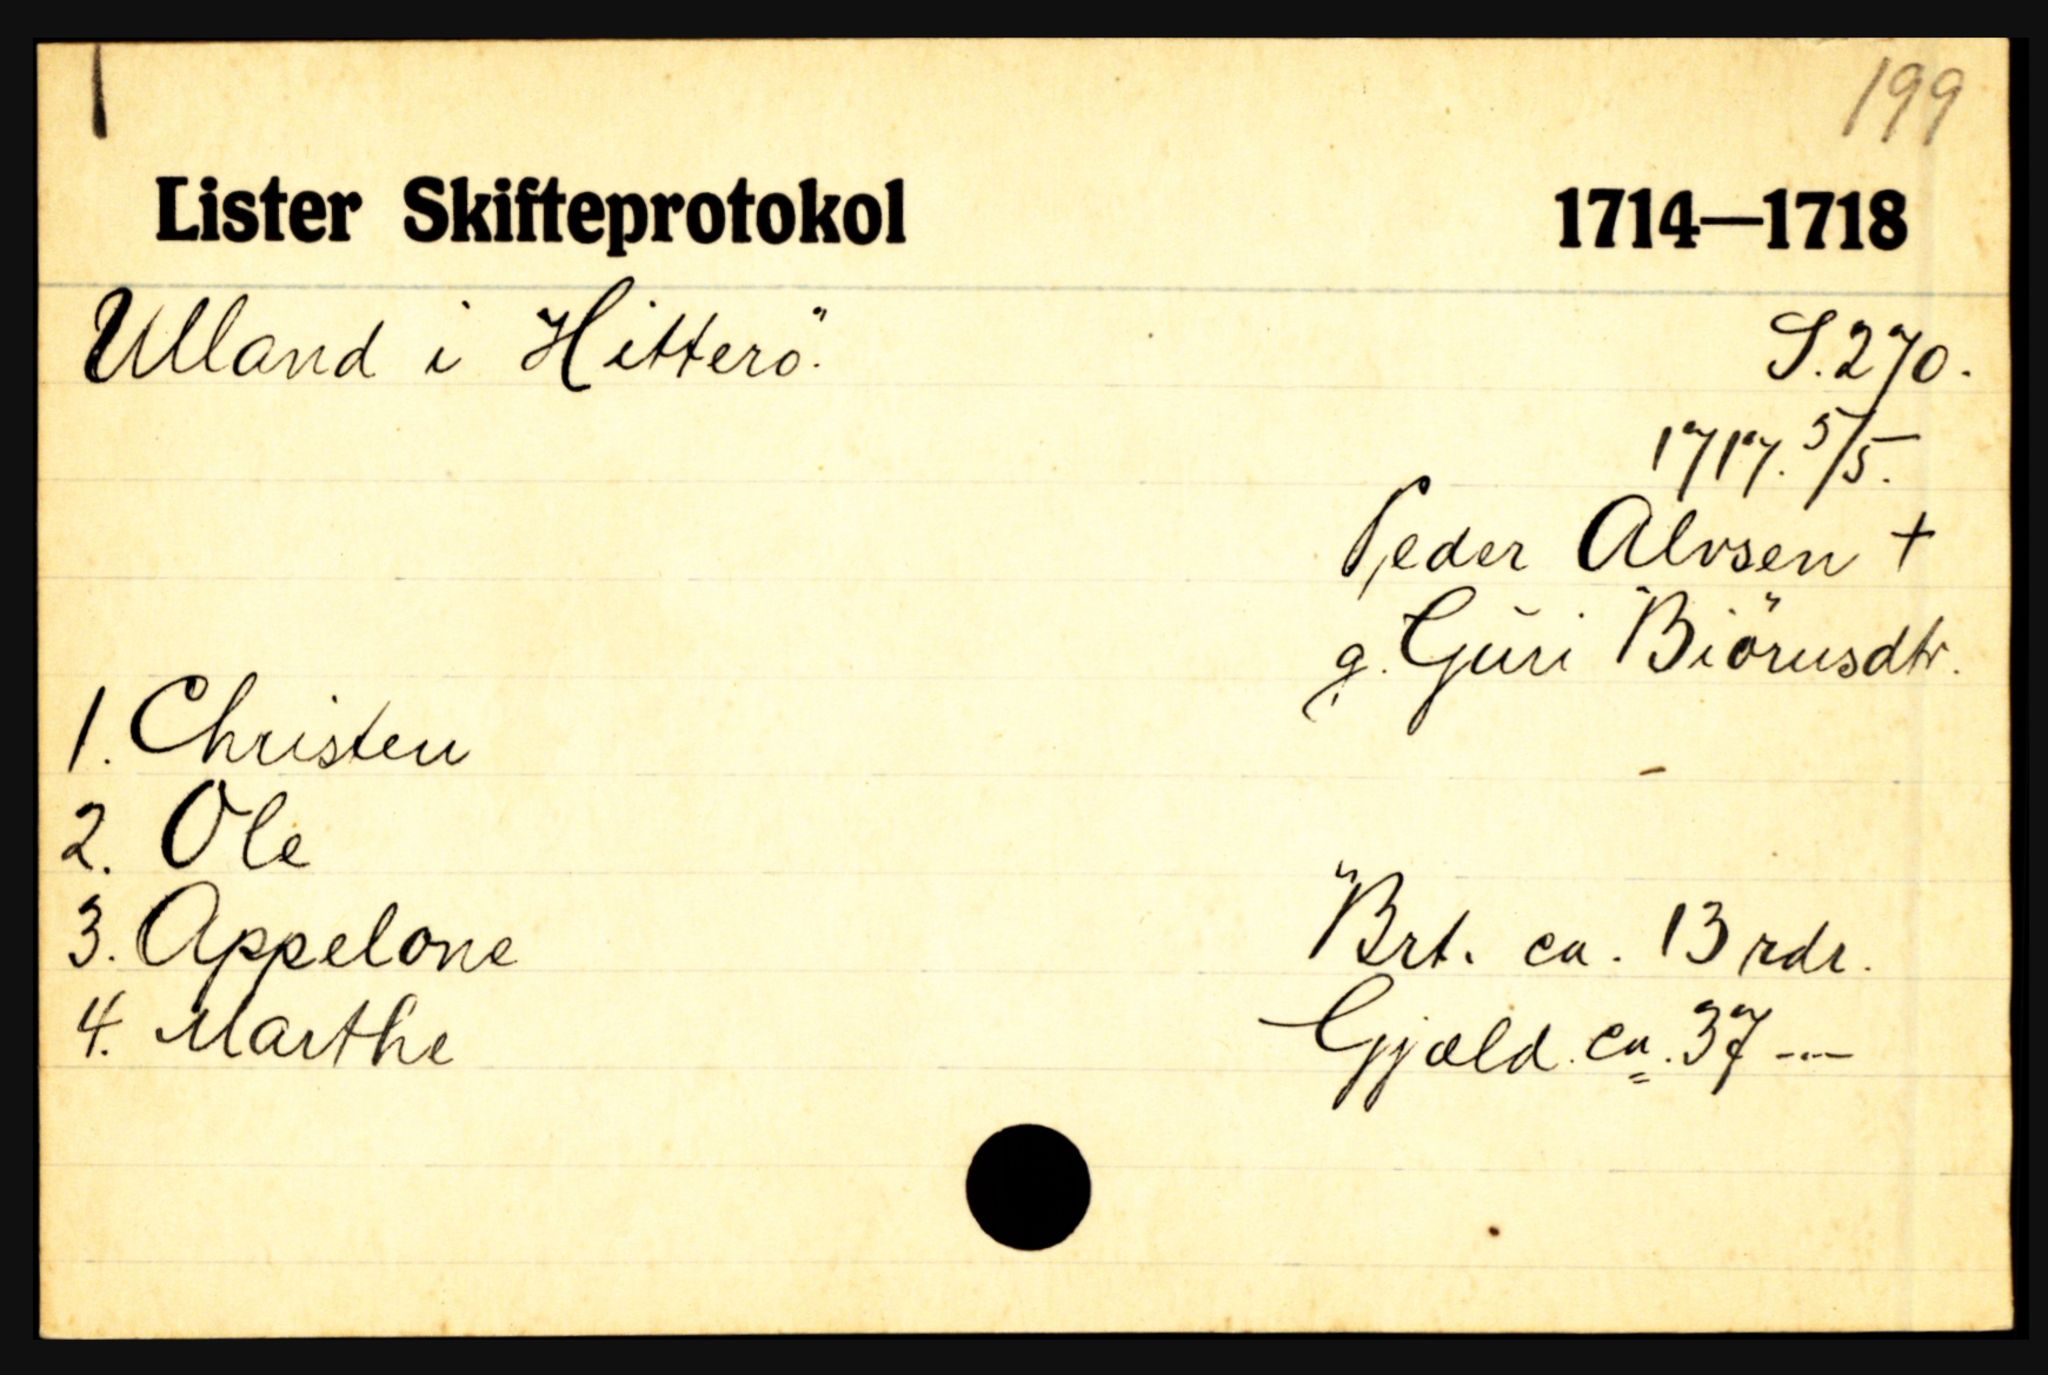 199
Lister Skifteprotokol 1714—1718
Ulland i Hitterö. S. 270.
1717. 5/5.
Peder Alvsen +
g. Guri Biörnsdtr.
1. Christen
2. Ole
3. Appelone Brt. ca. 13 rdr.
4. Marthe Gjæld. ca. 37 -.-